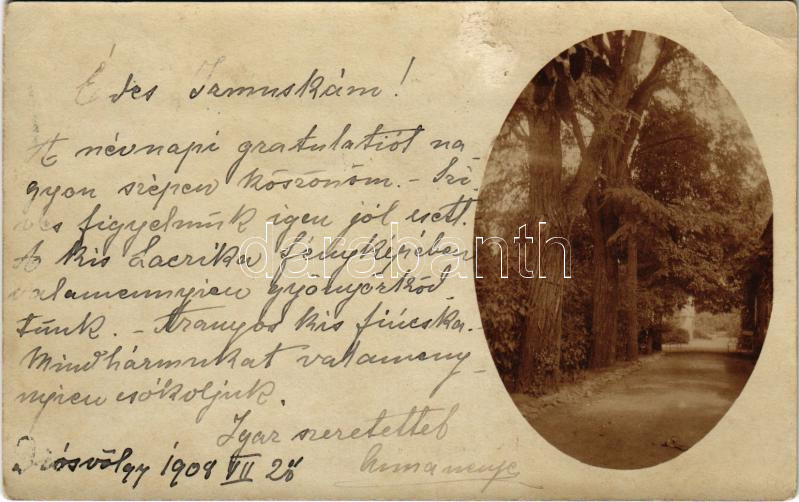 Édes Irmuskám!
A névnapi gratulatiót na-
gyon szépen köszönöm. - Szi-
ves figyelmük igen jól esett.
A kis Laczika fényképében
valamennyien gyönyörköd-
tünk. - Aranyos kis fiúcska.
Mindhármukat valameny-
nyien csókoljuk.
Igaz szeretettel
Diósvölgy 1908 VII 28
darabanth.com